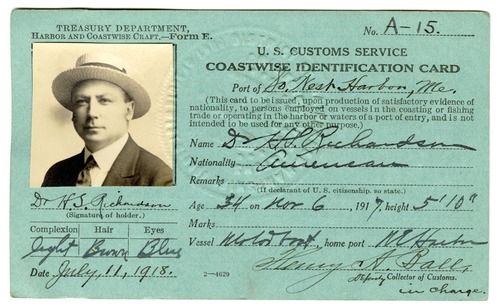 TREASURY DEPARTMENT,
HARBOR AND COASTWISE CRAFT.—FORM E.
No. A-15.
U. S. CUSTOMS SERVICE
COASTWISE IDENTIFICATION CARD
Port of So. West Harbor, Me.
(This card to be issued, upon production of satisfactory evidence of
nationality, to persons employed on vessels in the coasting or fishing
trade or operating in the harbor or waters of a port of entry, and is not
intended to be used for any other purpose.)
Name Dr H. S. Richardson
Nationality American
Remarks
(If declarant of U. S. citizenship, so state.)
Age 34 on Nov 6, 1917, height 5' 10"
Marks
Vessel Motor boat, home port N E Harbor
Henry A. Ball,
Deputy Collector of Customs.
in charge.
Dr H. S. Richardson
(Signature of holder.)
Complexion Hair Eyes
light Brown Blue
Date July, 11, 1918.
2—4629